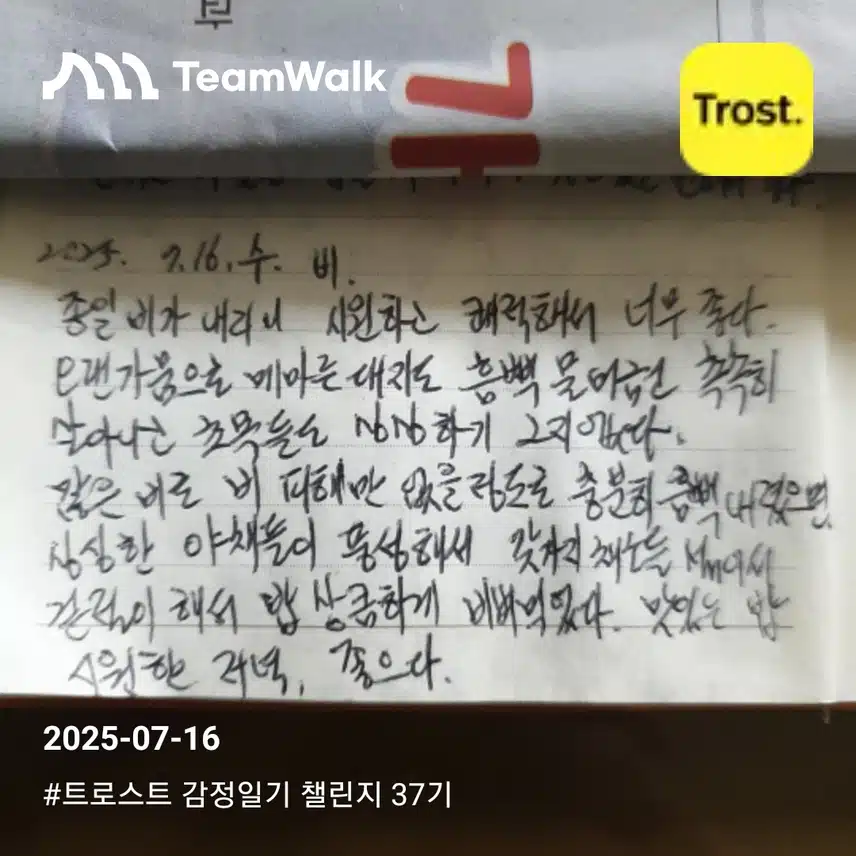 TeamWalk
Trost.
가
2025. 7. 16. 수. 비.
종일 비가 내리니 시원하고 쾌적해서 너무 좋다.
오랜가뭄으로 메마른 대지도 흠뻑 물머금건 촉촉히
살아나고 초목들도 싱싱하기 그지없다.
많은 비로 비 피해만 없을정도로 충분히 흠뻑 내렸으면
싱싱한 야채들이 풍성해서 갖가지 채소들
겉절이 해서 밥 상큼하게 비벼먹었다. 맛있는 밥
시원한 저녁, 좋으다.
2025-07-16
#트로스트 감정일기 챌린지 37기